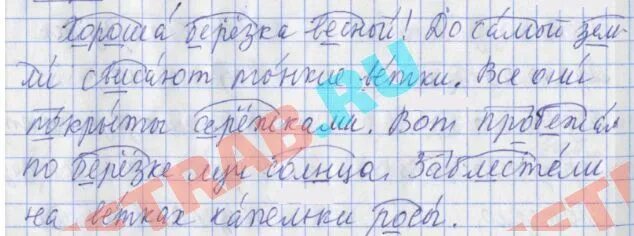 Хороша́ берёзка весно́й! До са́мой зем-
ли́ свиса́ют то́нкие ве́тки. Все они́
покры́ты серёжками. Вот пробежал
по берёзке луч солнца. Заблесте́ли
на ве́тках ка́пельки росы́.